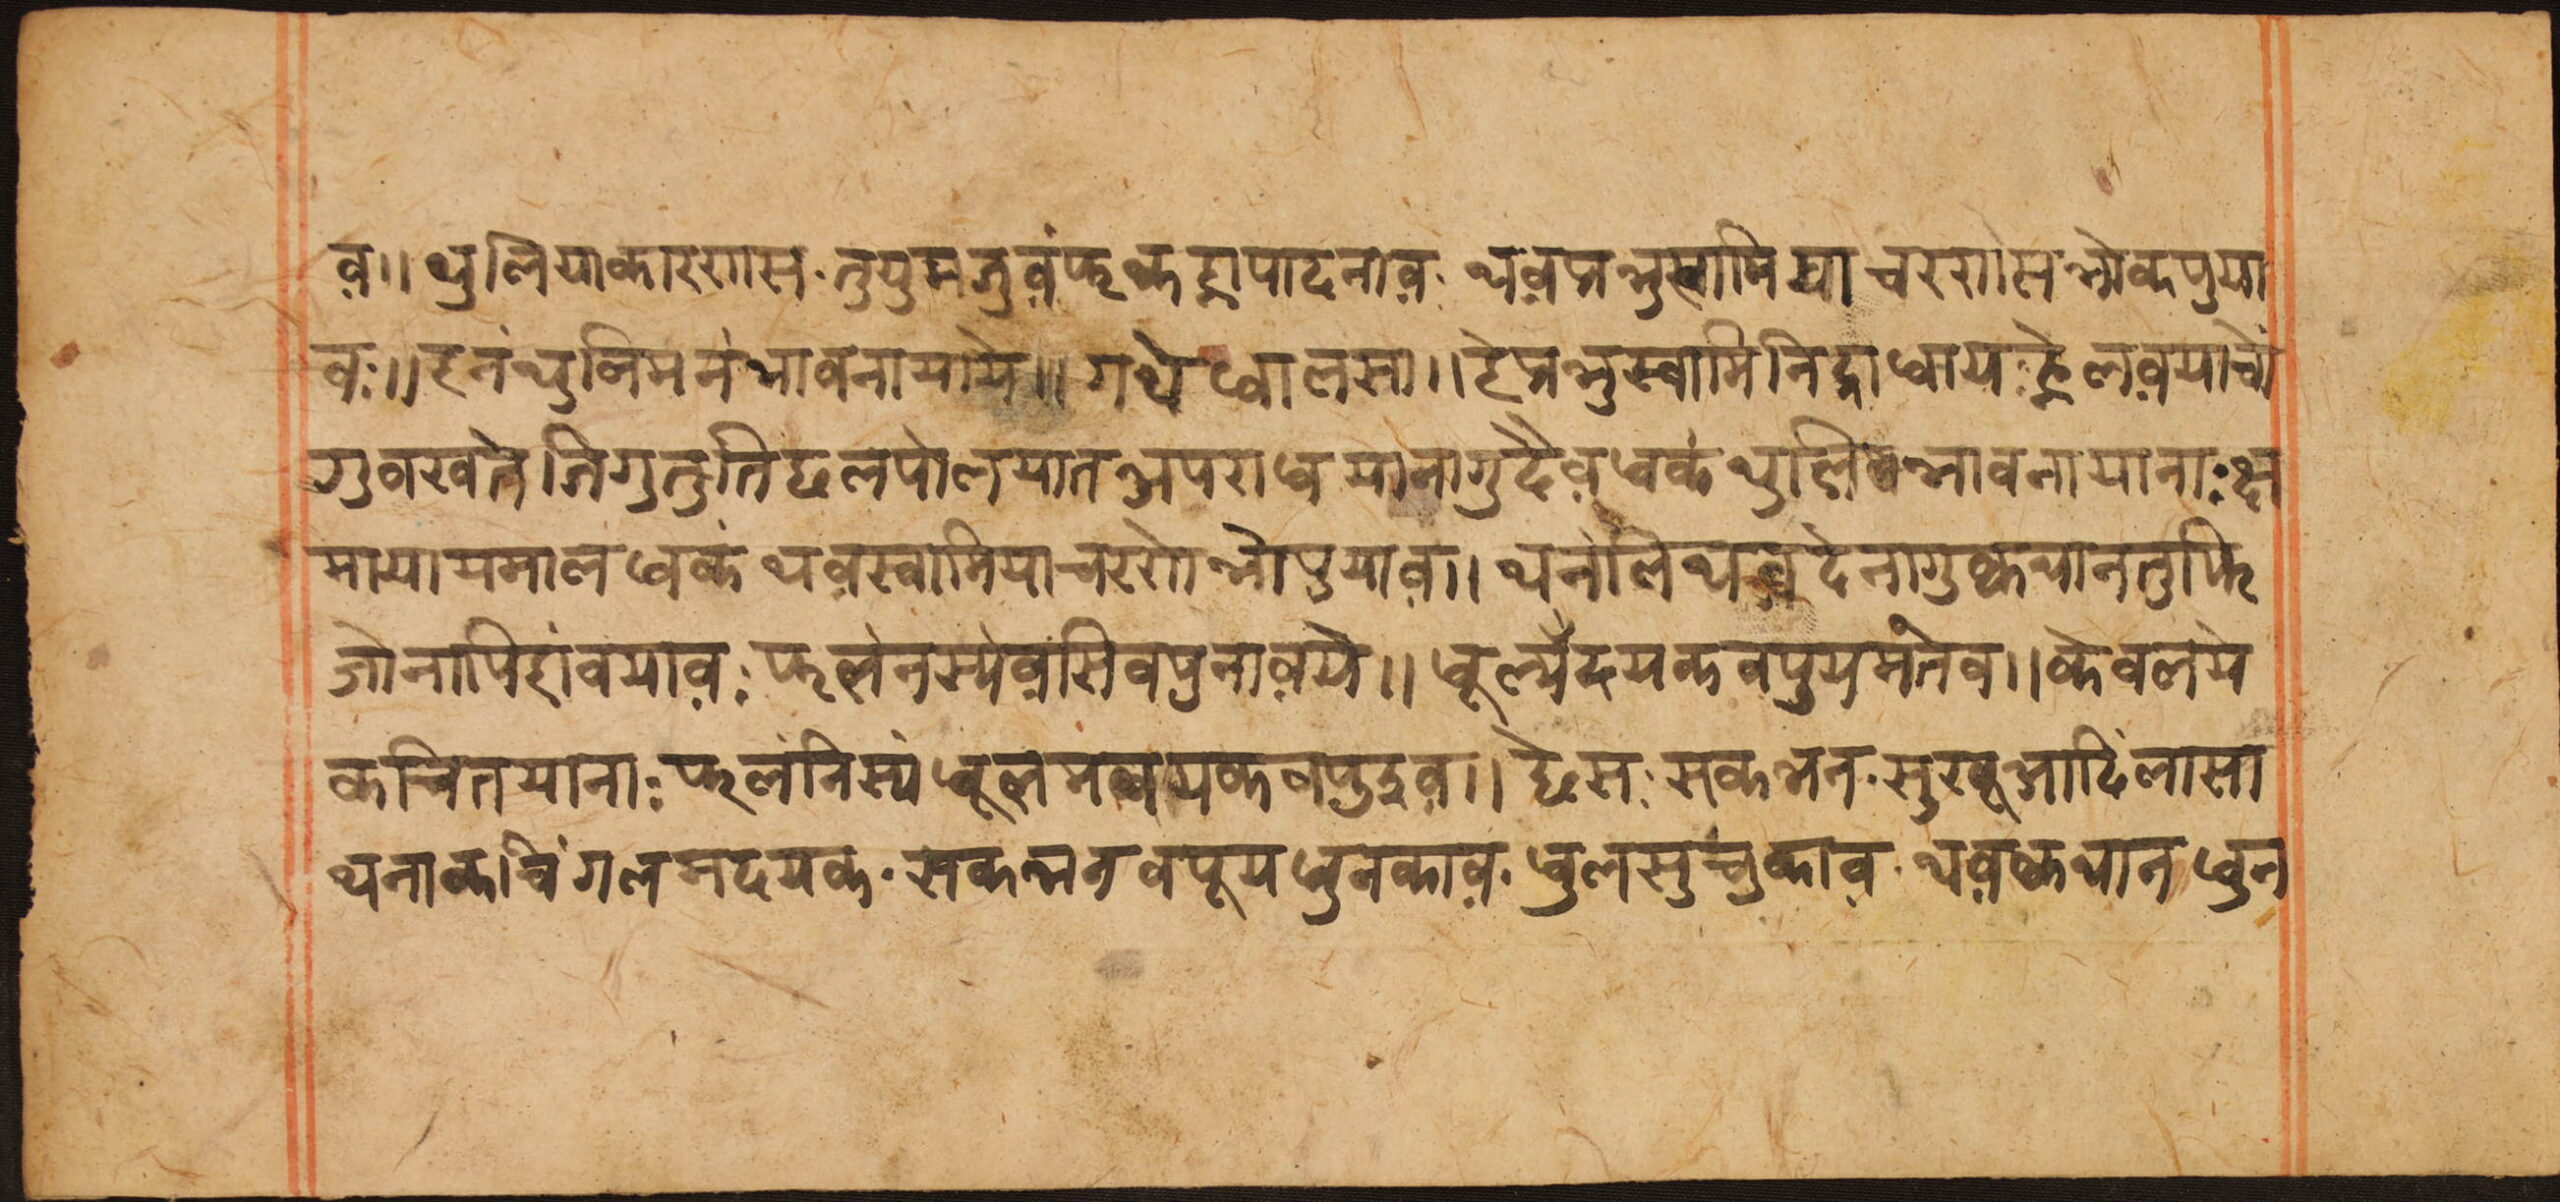 व॥ थुलियाकारणस. तुयुमजुवंफुक्कह्नापादनाव. थवप्रभुस्वामिया चरणस भोकपुया
व॥ हनं थुलिमनं भावनायाये॥ गथे धालसा॥ हेप्रभुस्वामि निद्राधाय हेलवयाचों
गुवखते जिगुतुतिछलपोलयात अपराधयानागुदैव धकं थुलिभावनायानाः क्ष
मायायमाल धकं थवस्वामियाचरणे भोपुयाव॥ थनंलि थवदेनागुकथानतुफि
जोनापिहांवयाव. फलेनस्येवंसिवपुनावये॥ धूलमदयकवपुयमतेव॥ केवलये
कचितयानाः फलंनिस्यं धूलमदयकवपुइव॥ छेस. सकभन. सुखूआदिंलासा
थनाकाचिंगलमदयक. सकभनवपूयधुनकाव. धुलसुचुकाव. थवकथानधुन